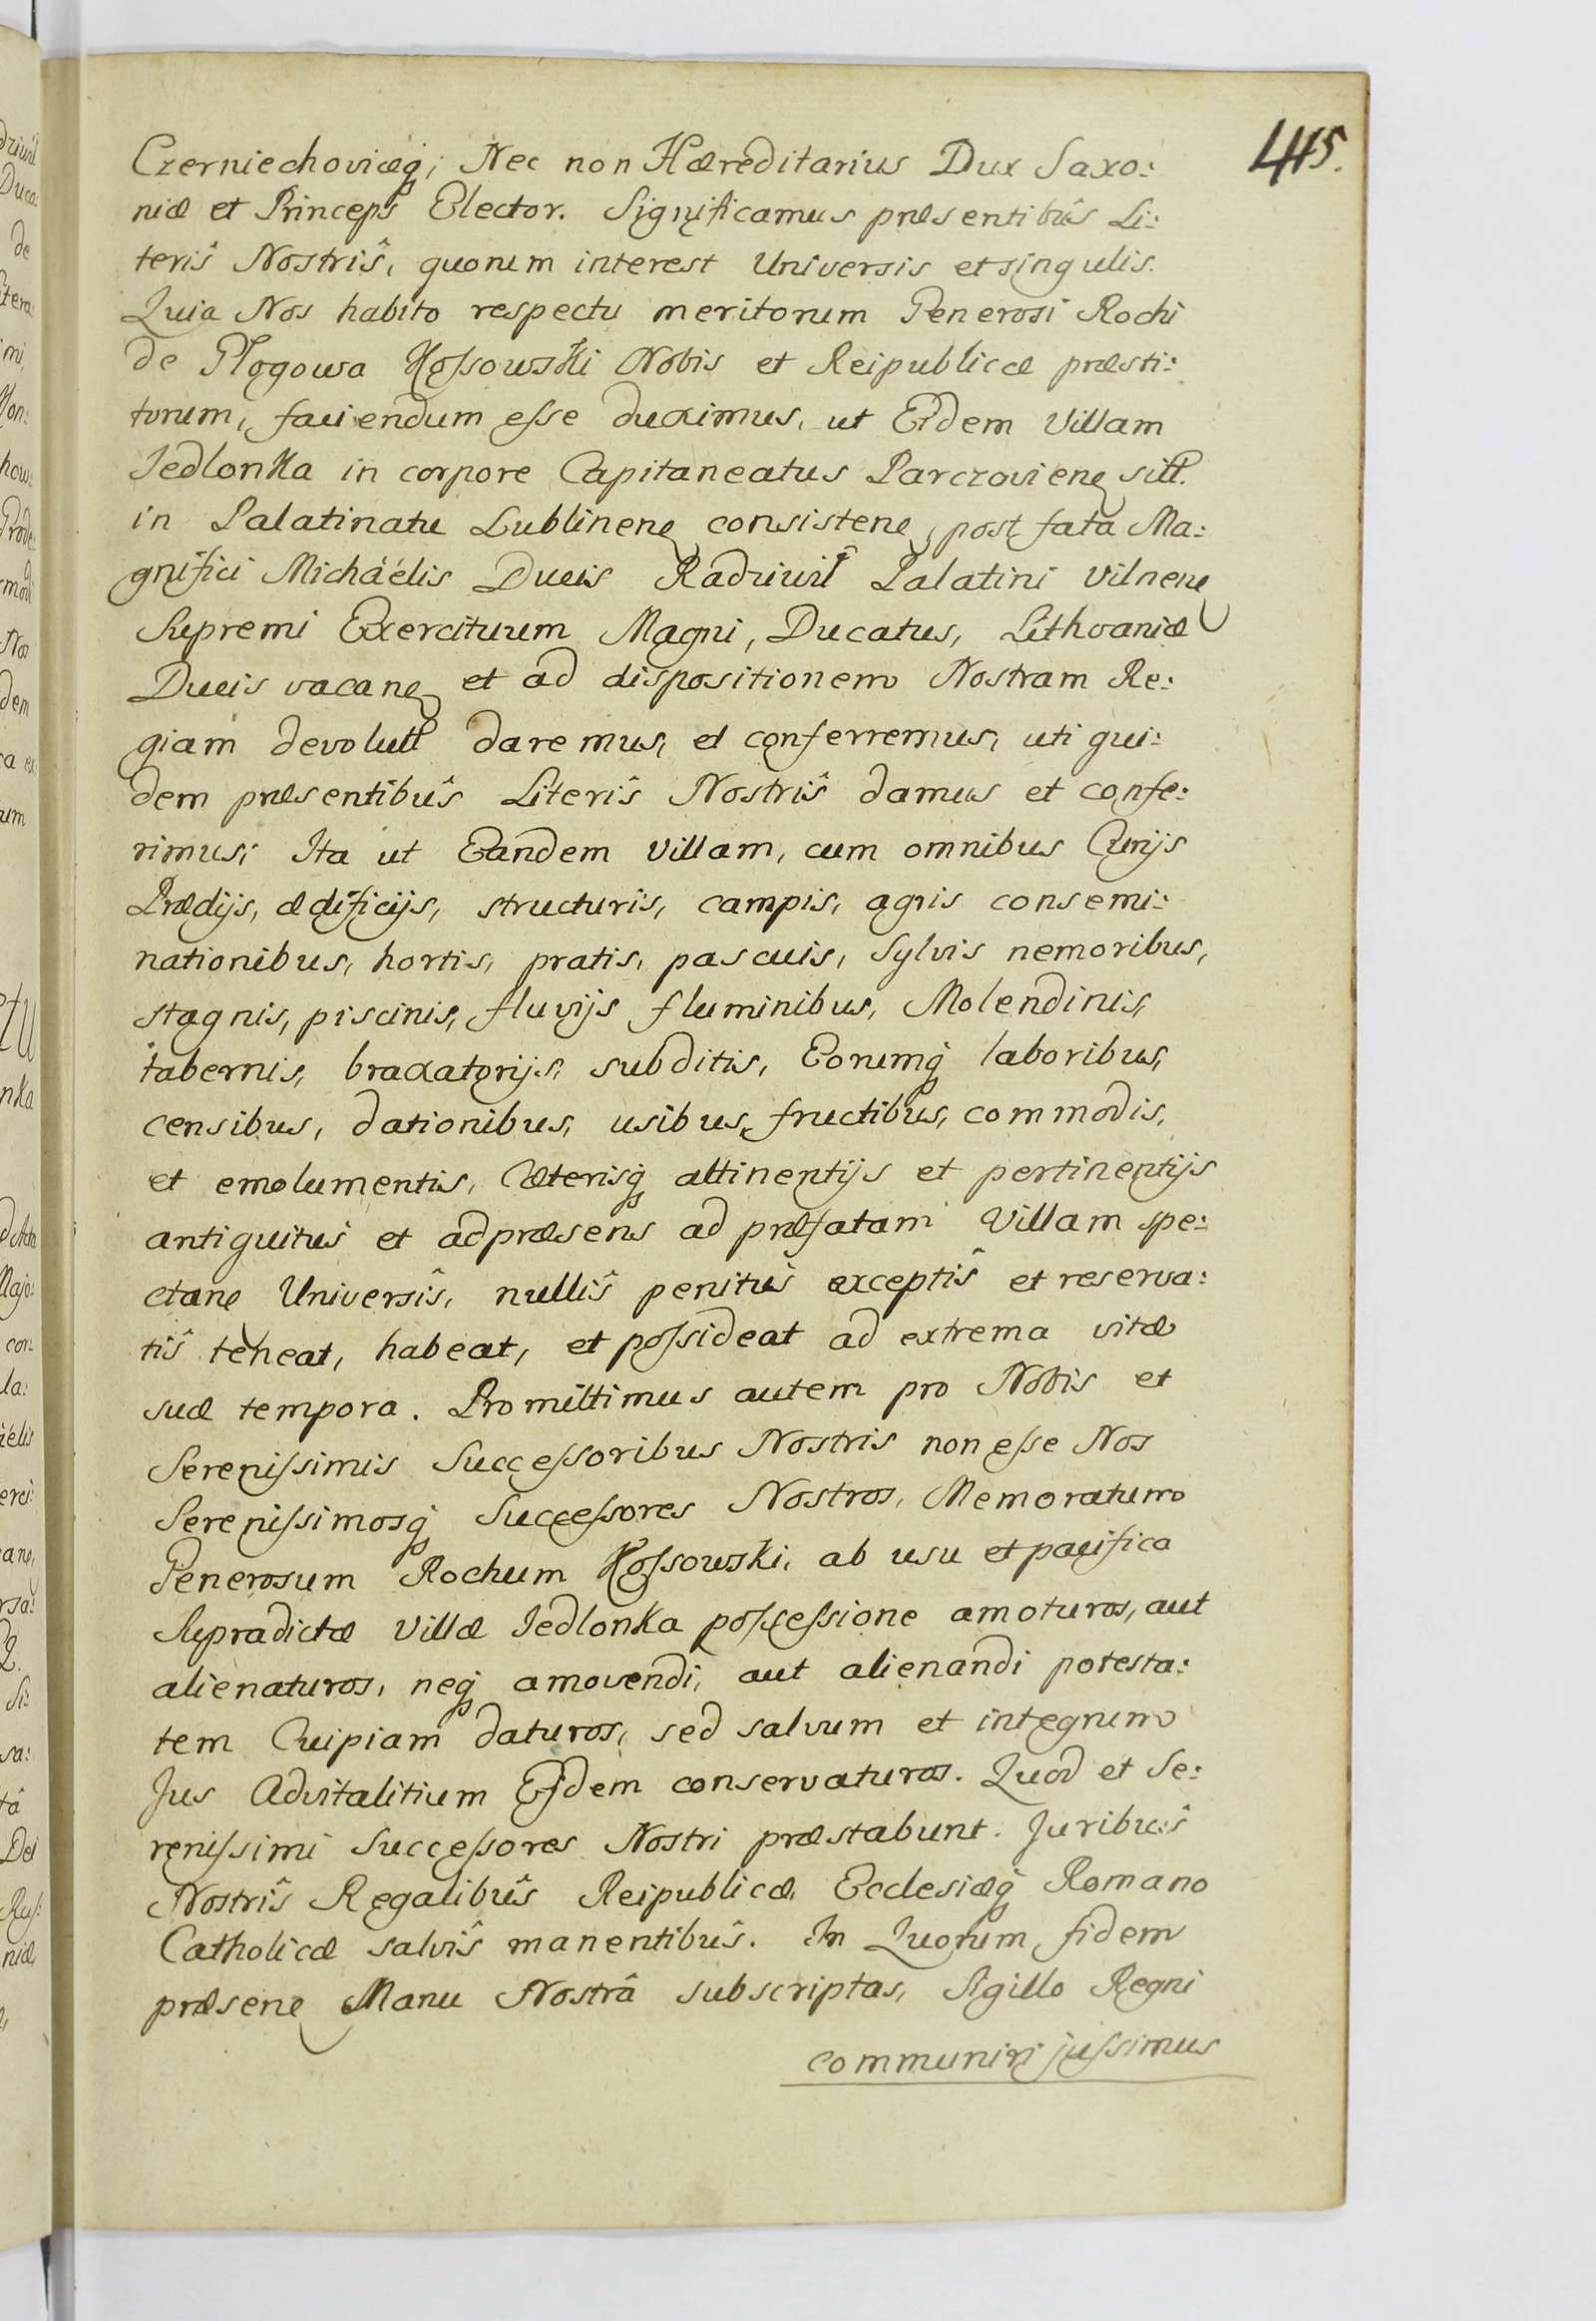 415.
Czerniechoviæq; Nec non Hæreditarius Dux Saxo:
niæ et Princeps Elector. Significamus præsentibûs Li:
terîs Nostrîs, quorum interest Universis et singulis.
Quia Nos habito respectu meritorum Generosi Rochi
de Głogowa Kossowski Nobis et Reipublicæ præsti:
torum, faciendum esse duximus, ut Eidem Villam
Jedlonka in corpore Capitaneatus Parczoviens sitt.
in Palatinatu Lublinens consistens, post fata Ma:
gnifici Michäélis Ducis Radziwił Palatini Vilnens
Supremi Exercituum Magni, Ducatus, Lithvaniæ
Ducis vacans et ad dispositionem Nostram Re:
giam devolutt daremus, et conferremus, uti qui:
dem præsentibûs Literîs Nostrîs damus et confe:
rimus; Ita ut Eandem Villam, cum omnibus Curijs
Prædijs, ædificijs, structuris, campis, agris consemi:
nationibus, hortis, pratis, pascuis, Sylvis nemoribus,
stagnis, piscinis, fluvijs fluminibus, Molendinis,
tabernis, braxatorijs, subditis, Eorumq laboribus,
censibus, dationibus, usibus, fructibus, commodis,
et emolumentis, Cæterisq attinentijs et pertinentijs
antiquitus et ad præsens ad præfatam Villam spe:
ctans Universîs, nullîs penitus exceptîs et reserva:
tîs teneat, habeat, et possideat ad extrema vitæ
suæ tempora. Promittimus autem pro Nobis et
Serenissimis Successoribus Nostris non esse Nos
Serenissimosq Successores Nostros, Memoratum
Generosum Rochum Kossowski, ab usu et pacifica
Supradictæ Villæ Jedlonka possessione amoturos, aut
alienaturos, neq amovendi, aut alienandi potesta:
tem Cuipiam daturos, sed salvum et integrum
Jus Advitalitium Eidem conservaturos. Quod et Se:
renissimi Successores Nostri præstabunt. Juribûs
Nostrîs Regalibûs Reipublicæ, Ecclesiæq Romano
Catholicæ salvîs manentibûs. In Quorum fidem
præsens Manu Nostrâ subscriptas, Sigillo Regni
communiri jussimus